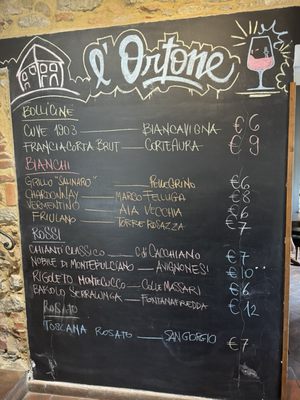 l'Ortone
BOLLICINE
CUVE 1903 BIANCAVIGNA €6
FRANCIACORTA BRUT CORTEAURA €9
BIANCHI
GRILLO "SALINARO" PELLEGRINO €6
CHARDONNAY MARCO FELLUGA €8
VERMENTINO AIA VECCHIA €6
FRIULANO TORRE ROSAZZA €7
ROSSI
CHIANTI CLASSICO CACCHIANO €7
NOBILE DI MONTEPULCIANO AVIGNONESI €10
RIGOLETO MONTECUCCO COLLE MASSARI €6
BAROLO SERRALUNGA FONTANAFREDDA €12
ROSATO
TOSCANA ROSATO SAN GIORGIO €7